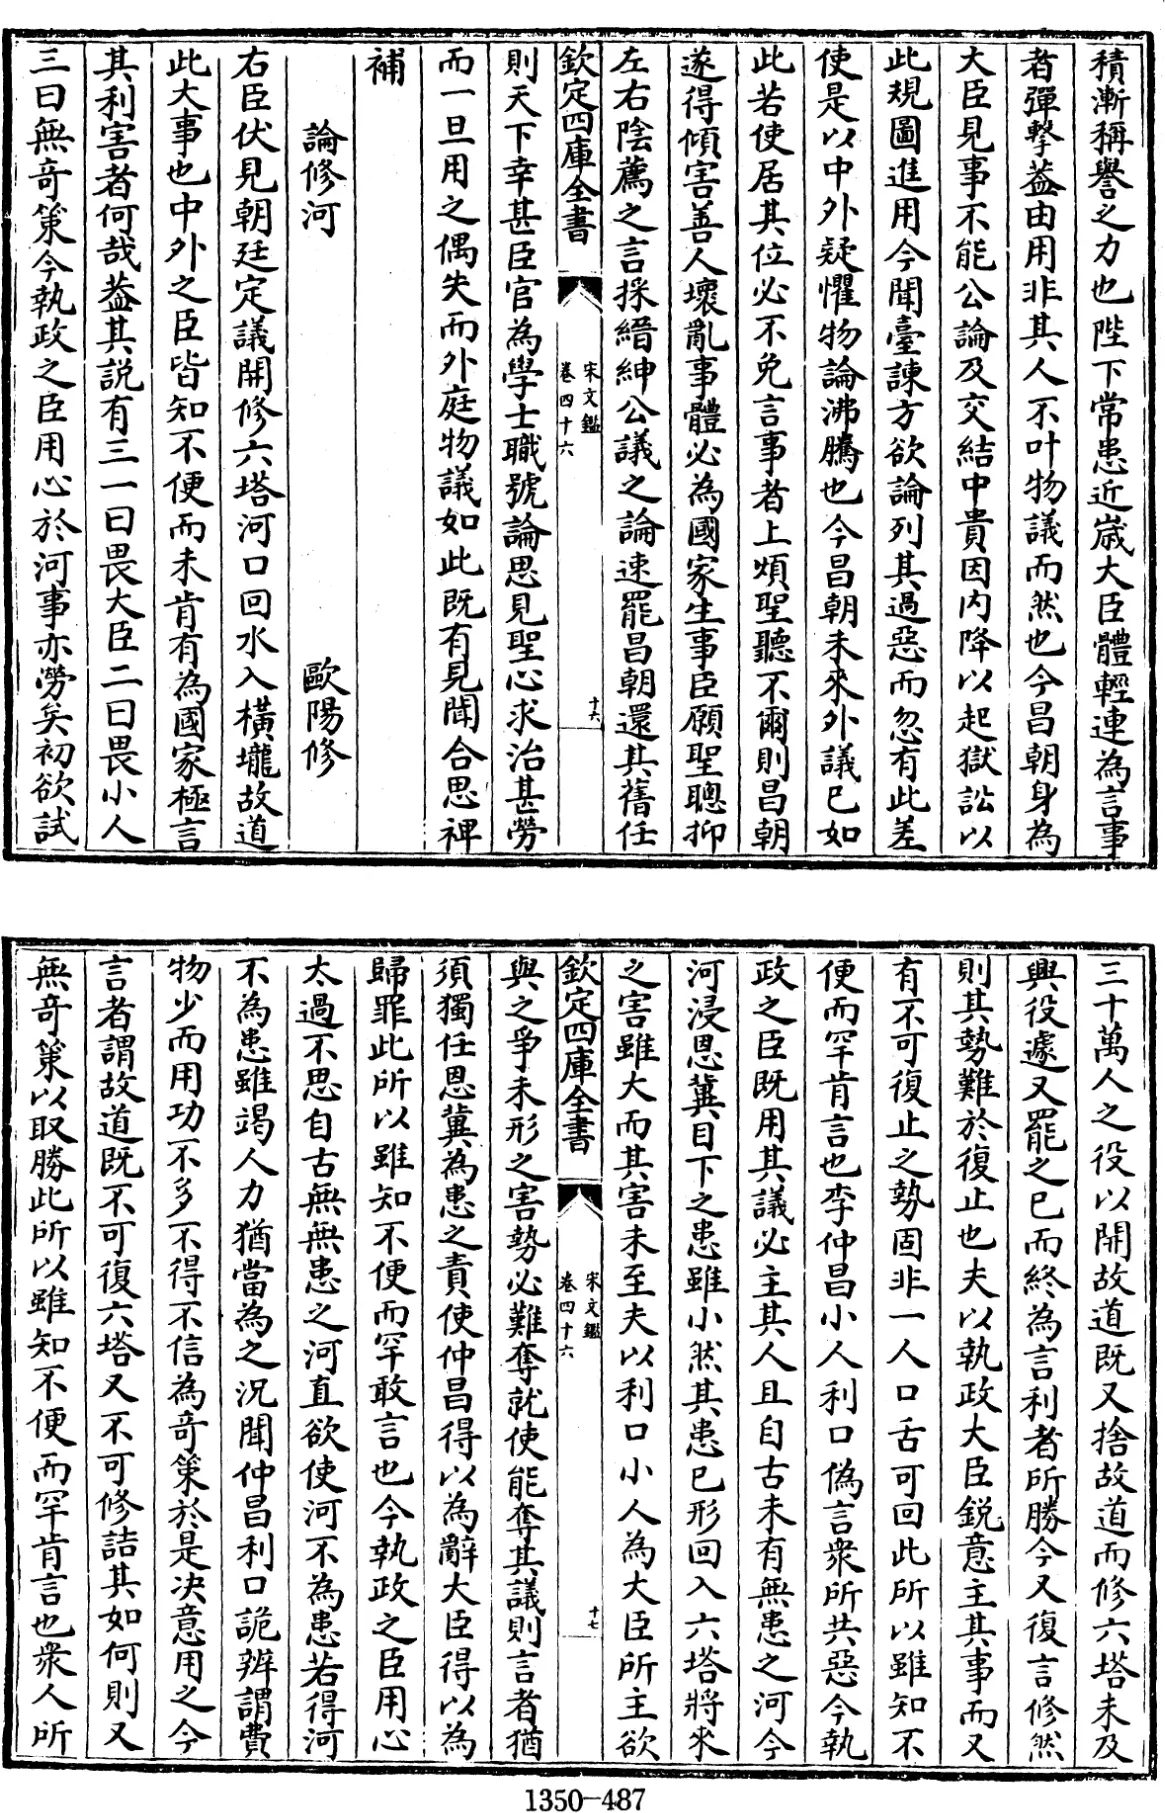 積漸稱譽之力也陛下常患近嵗大臣體輕連為言事
者彈擊葢由用非其人不叶物議而然也今昌朝身為
大臣見事不能公論及交結中貴因内降以起獄訟以
此規圖進用今聞臺諫方欲論列其過惡而忽有此差
使是以中外疑懼物論沸騰也今昌朝未來外議已如
此若使居其位必不免言事者上煩聖聽不爾則昌朝
遂得傾害善人壞亂事體必為國家生事臣願聖聰抑
左右陰薦之言採縉紳公議之論速罷昌朝還其舊任
欽定四庫全書
宋文鑑
卷四十六
十六
則天下幸甚臣官為學士職號論思見聖心求治甚勞
而一旦用之偶失而外庭物議如此既有見聞合思裨
補
論修河 歐陽修
右臣伏見朝廷定議開修六塔河口回水入橫壠故道
此大事也中外之臣皆知不便而未肯有為國家極言
其利害者何哉葢其説有三一曰畏大臣二曰畏小人
三曰無竒策今執政之臣用心於河事亦勞矣初欲試
三十萬人之役以開故道既又捨故道而修六塔未及
興役遽又罷之已而終為言利者所勝今又復言修然
則其勢難於復止也夫以執政大臣鋭意主其事而又
有不可復止之勢固非一人口舌可回此所以雖知不
便而罕肯言也李仲昌小人利口偽言衆所共惡今執
政之臣既用其議必主其人且自古未有無患之河今
河浸恩冀目下之患雖小然其患已形回入六塔將來
之害雖大而其害未至夫以利口小人為大臣所主欲
欽定四庫全書
宋文鑑
卷四十六
十七
與之爭未形之害勢必難奪就使能奪其議則言者猶
須獨任恩冀為患之責使仲昌得以為辭大臣得以為
歸罪此所以雖知不便而罕敢言也今執政之臣用心
太過不思自古無無患之河直欲使河不為患若得河
不為患雖竭人力猶當為之况聞仲昌利口詭辨謂費
物少而用功不多不得不信為竒策於是决意用之今
言者謂故道既不可復六塔又不可修詰其如何則又
無竒策以取勝此所以雖知不便而罕肯言也衆人所
1350-487